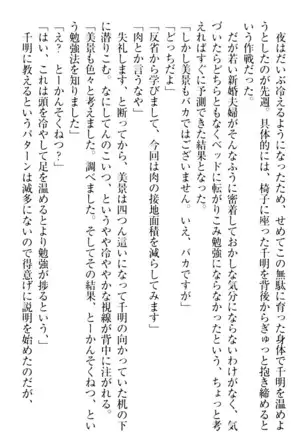 夜はだいぶ冷えるようになり、せめてこの無駄に育った身体で千明を温めよ
うとしたのが先週。具体的には、椅子に座った千明を背後からぎゅっと抱き締めると
いう作戦だった。
だが若い新婚夫婦がそんなふうに密着しておかしな気分にならないわけがなく、気
づいたらどちらともなくベッドに転がりこみ勉強にならなかったという、ちょっと考
えればすぐに予測できた結果となった。
「しかし美景もバカではございません。いえ、バカですが」
「どっちだよ」
「反省から学びまして、今回は肉の接地面積を減らしてみます」
「肉とか言うなや」
失礼します、と断ってから、美景は四つん這いになって千明の向かっていた机の下
に潜りこむ。なにしてんのこいつ、というやや冷ややかな視線が背中に注がれる。
「美景も色々と考えました。調べました。そしてその結果、とーかんそくねつ、とい
う勉強法を知りました」
「え？　とーかんそくねつ？」
「はい、これは頭を冷やして足を温めるとより勉強が捗るという、」
千明に教えるというパターンは滅多にないので得意げに説明を始めたのだが、